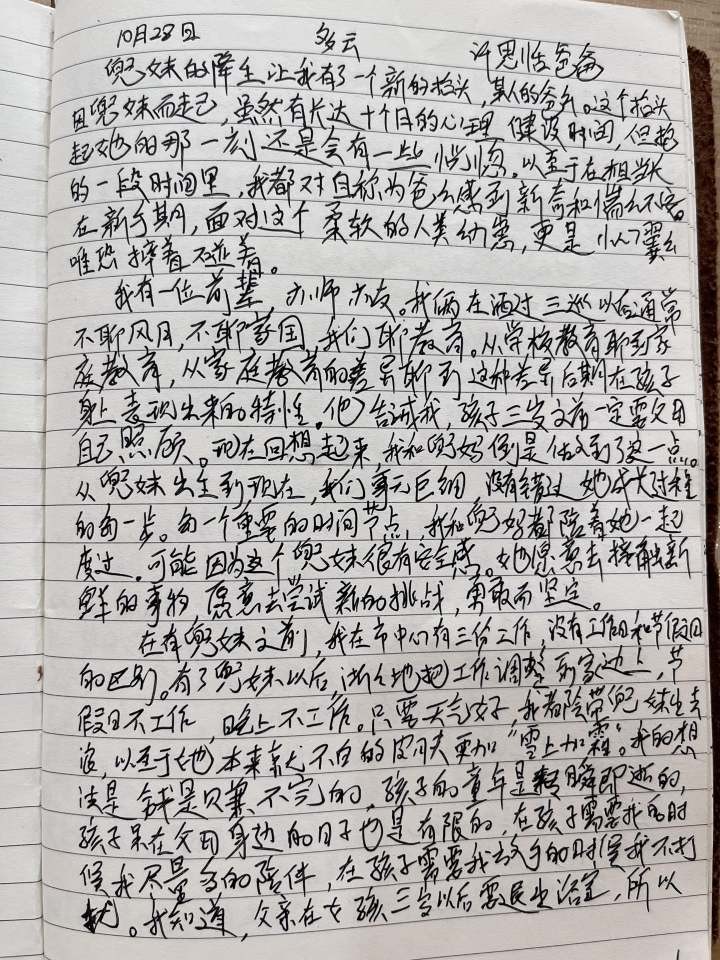 10月28日 多云 许思恬爸爸
兜妹的降生让我有了一个新的抬头，某人的爸爸。这个抬头
因兜妹而起，虽然有长达十个月的心理建设时间，但抬
起她的那一刻还是会有一些惶恐。以至于在相当长
的一段时间里，我都对自称为爸爸感到新奇和惴惴不安。
在新手期，面对这个柔软的人类幼崽，更是小心翼翼
唯恐捧着不过着。
我有一位前辈 亦师亦友。我俩在酒过三巡以后通常
不聊风月，不聊家国，我们聊教育。从学校教育聊到家
庭教育，从家庭教育的差异聊到这种差异后期在孩子
身上表现出来的特性。他告诫我，孩子三岁之前一定要父母
自己照顾。现在回想起来 我和兜妈倒是做到了这一点。
从兜妹出生到现在，我们事无巨细 没有错过她成长过程
的每一步。每一个重要的时间节点，我和兜妈都陪着她一起
度过。可能因为这个兜妹很有安全感。她愿意去接触新
鲜的事物 愿意去尝试新的挑战，勇敢而坚定。
在有兜妹之前，我在市中心有三份工作，没有工作日和节假日
的区别。有了兜妹以后，渐渐地把工作调整到家边上，节
假日不工作，晚上不工作。只要天气好，我都会带兜妹出去
浪，以至于她本来就不白的皮肤更加“雪上加霜”。我的想
法是 钱是只赚不完的，孩子的童年是转瞬即逝的，
孩子呆在父母身边的日子也是有限的，在孩子需要我的时
候我尽量多的陪伴，在孩子需要我放手的时候我不打
扰。我知道，父亲在女孩三岁以后要民生活宝，所以